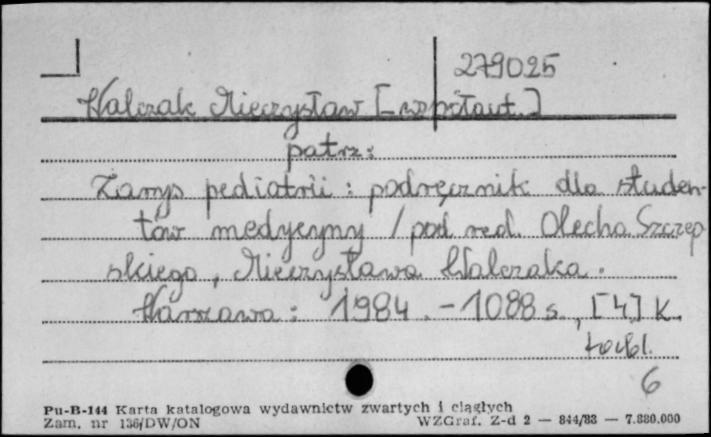 279025
Walczak Mieczysław [współaut.]
patrz:
Zarys pediatrii : podręcznik dla studen-
tów medycyny / pod red. Olecha Szczep
skiego, Mieczysława Walczaka.
Warszawa : 1984. - 1088 s., [4] k.
tabl.
6
Pu-B-144 Karta katalogowa wydawnictw zwartych i ciągłych
Zam. nr 136/DW/ON WZGraf. Z-d 2 — 844/83 — 7.880.000